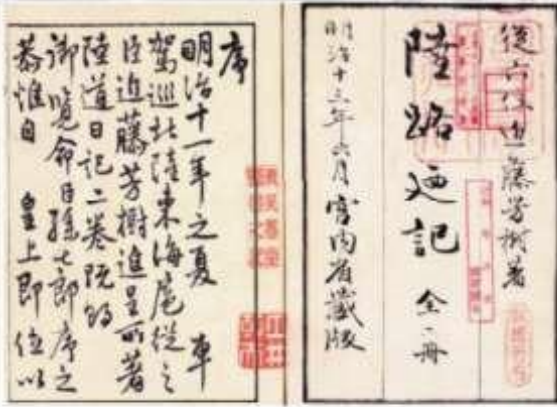 從六位近藤芳樹著
陸路廼記 全一冊
明治十三年六月宮内省蔵版
序
明治十一年之夏 車
駕巡北陸東海扈從之
臣近藤芳樹進呈所著
陸道日記二卷既的
御覧命臣孫七郎序之
恭惟自 皇上即位以